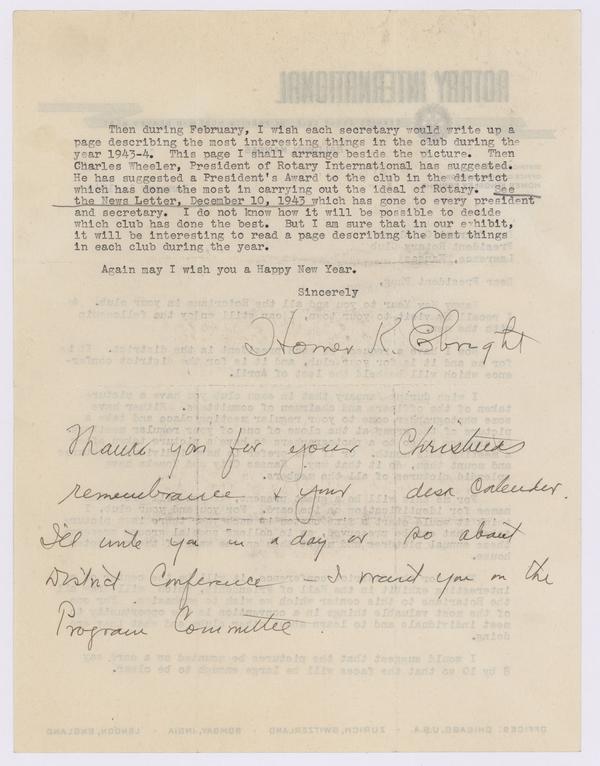 Then during February, I wish each secretary would write up a
page describing the most interesting things in the club during the
year 1943-4. This page I shall arrange beside the picture. Then
Charles Wheeler, President of Rotary International has suggested.
He has suggested a President's Award to the club in the district
which has done the most in carrying out the ideal of Rotary. See
the News Letter, December 10, 1943 which has gone to every president
and secretary. I do not know how it will be possible to decide
which club has done the best. But I am sure that in our exhibit,
it will be interesting to read a page describing the best things
in each club during the year.
Again may I wish you a Happy New Year.
Sincerely
Homer K. Ebright
Thank you for your Christmas
remembrance & your desk Calender.
I'll write you in a day or so about
District Conference - I want you on the
Program Committee.